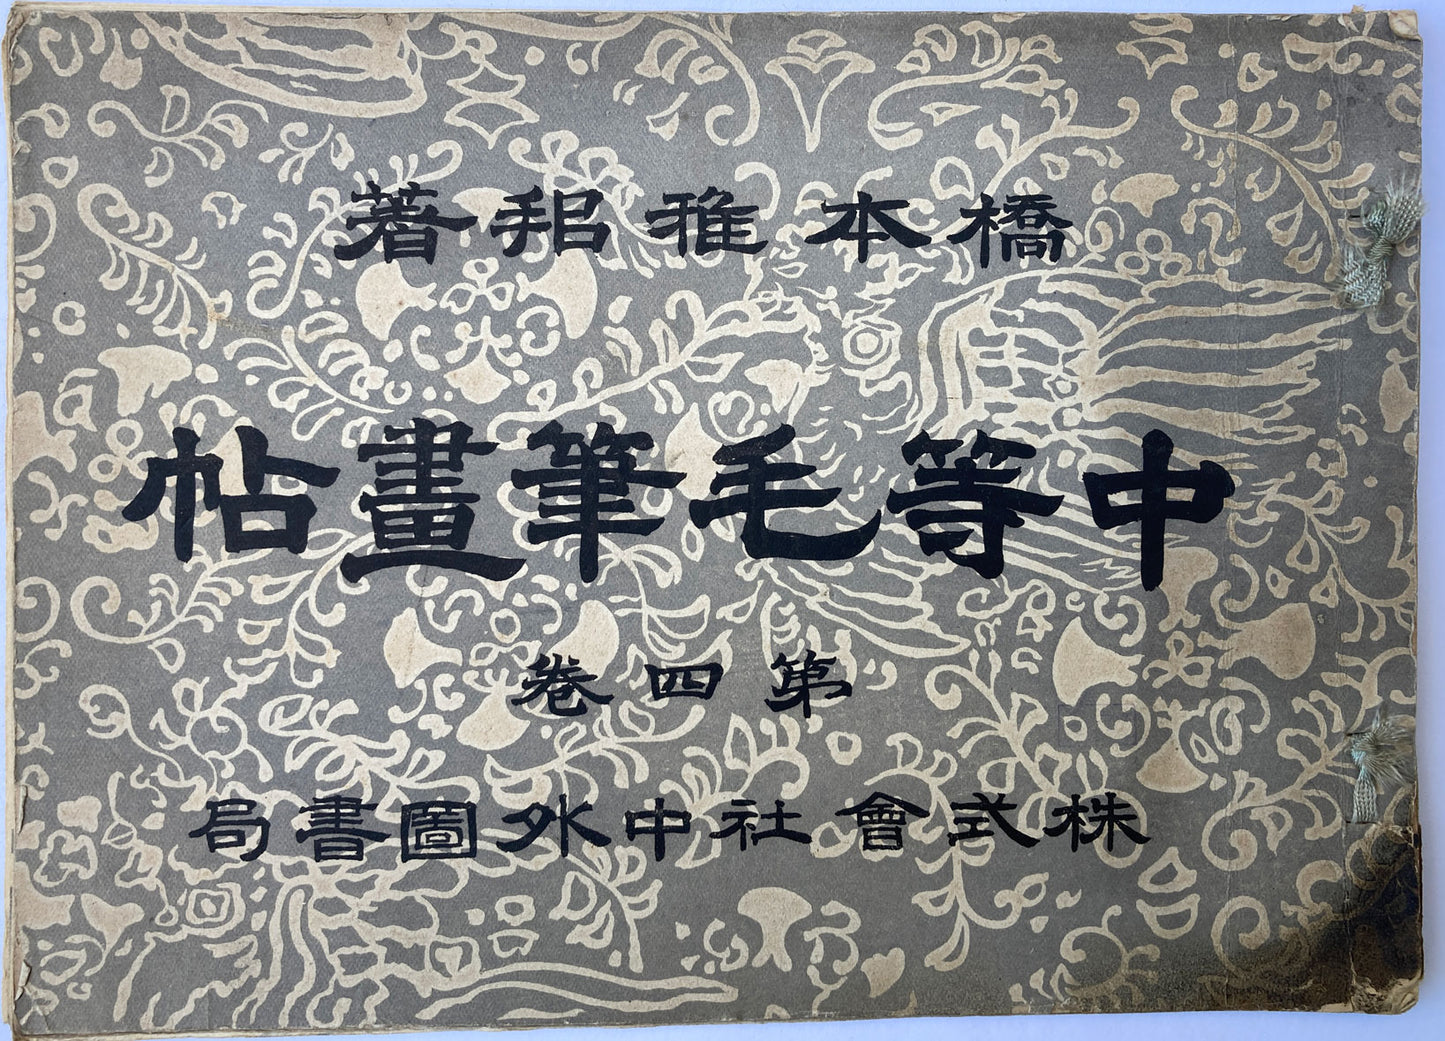 橋本雅邦著
中等毛筆畫帖
第四卷
株式會社中外圖書局